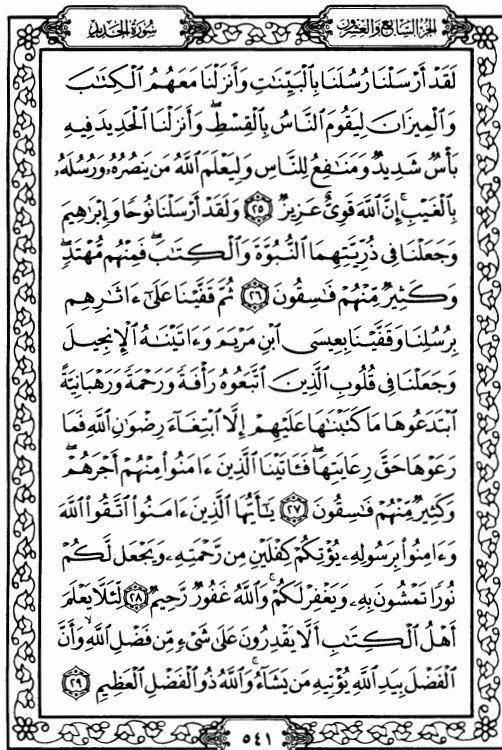 الجزء السابع والعشرون
سورة الحديد
لَقَدْ أَرْسَلْنَا رُسُلَنَا بِالْبَيِّنَٰتِ وَأَنزَلْنَا مَعَهُمُ الْكِتَٰبَ
وَالْمِيزَانَ لِيَقُومَ النَّاسُ بِالْقِسْطِ ۖ وَأَنزَلْنَا الْحَدِيدَ فِيهِ
بَأْسٌ شَدِيدٌ وَمَنَٰفِعُ لِلنَّاسِ وَلِيَعْلَمَ اللَّهُ مَن يَنصُرُهُۥ وَرُسُلَهُۥ
بِالْغَيْبِ ۚ إِنَّ اللَّهَ قَوِيٌّ عَزِيزٌ ﴿٢٥﴾ وَلَقَدْ أَرْسَلْنَا نُوحًا وَإِبْرَٰهِيمَ
وَجَعَلْنَا فِى ذُرِّيَّتِهِمَا النُّبُوَّةَ وَالْكِتَٰبَ ۖ فَمِنْهُم مُّهْتَدٍ ۖ
وَكَثِيرٌ مِّنْهُمْ فَٰسِقُونَ ﴿٢٦﴾ ثُمَّ قَفَّيْنَا عَلَىٰٓ ءَاثَٰرِهِم
بِرُسُلِنَا وَقَفَّيْنَا بِعِيسَى ابْنِ مَرْيَمَ وَءَاتَيْنَٰهُ الْإِنجِيلَ
وَجَعَلْنَا فِى قُلُوبِ الَّذِينَ اتَّبَعُوهُ رَأْفَةً وَرَحْمَةً وَرَهْبَانِيَّةً
ابْتَدَعُوهَا مَا كَتَبْنَٰهَا عَلَيْهِمْ إِلَّا ابْتِغَآءَ رِضْوَٰنِ اللَّهِ فَمَا
رَعَوْهَا حَقَّ رِعَايَتِهَا ۖ فَـَٔاتَيْنَا الَّذِينَ ءَامَنُوا۟ مِنْهُمْ أَجْرَهُمْ ۖ
وَكَثِيرٌ مِّنْهُمْ فَٰسِقُونَ ﴿٢٧﴾ يَٰٓأَيُّهَا الَّذِينَ ءَامَنُوا۟ اتَّقُوا۟ اللَّهَ
وَءَامِنُوا۟ بِرَسُولِهِۦ يُؤْتِكُمْ كِفْلَيْنِ مِن رَّحْمَتِهِۦ وَيَجْعَل لَّكُمْ
نُورًا تَمْشُونَ بِهِۦ وَيَغْفِرْ لَكُمْ ۚ وَاللَّهُ غَفُورٌ رَّحِيمٌ ﴿٢٨﴾ لِّئَلَّا يَعْلَمَ
أَهْلُ الْكِتَٰبِ أَلَّا يَقْدِرُونَ عَلَىٰ شَىْءٍ مِّن فَضْلِ اللَّهِ ۙ وَأَنَّ
الْفَضْلَ بِيَدِ اللَّهِ يُؤْتِيهِ مَن يَشَآءُ ۚ وَاللَّهُ ذُو الْفَضْلِ الْعَظِيمِ ﴿٢٩﴾
٥٤١